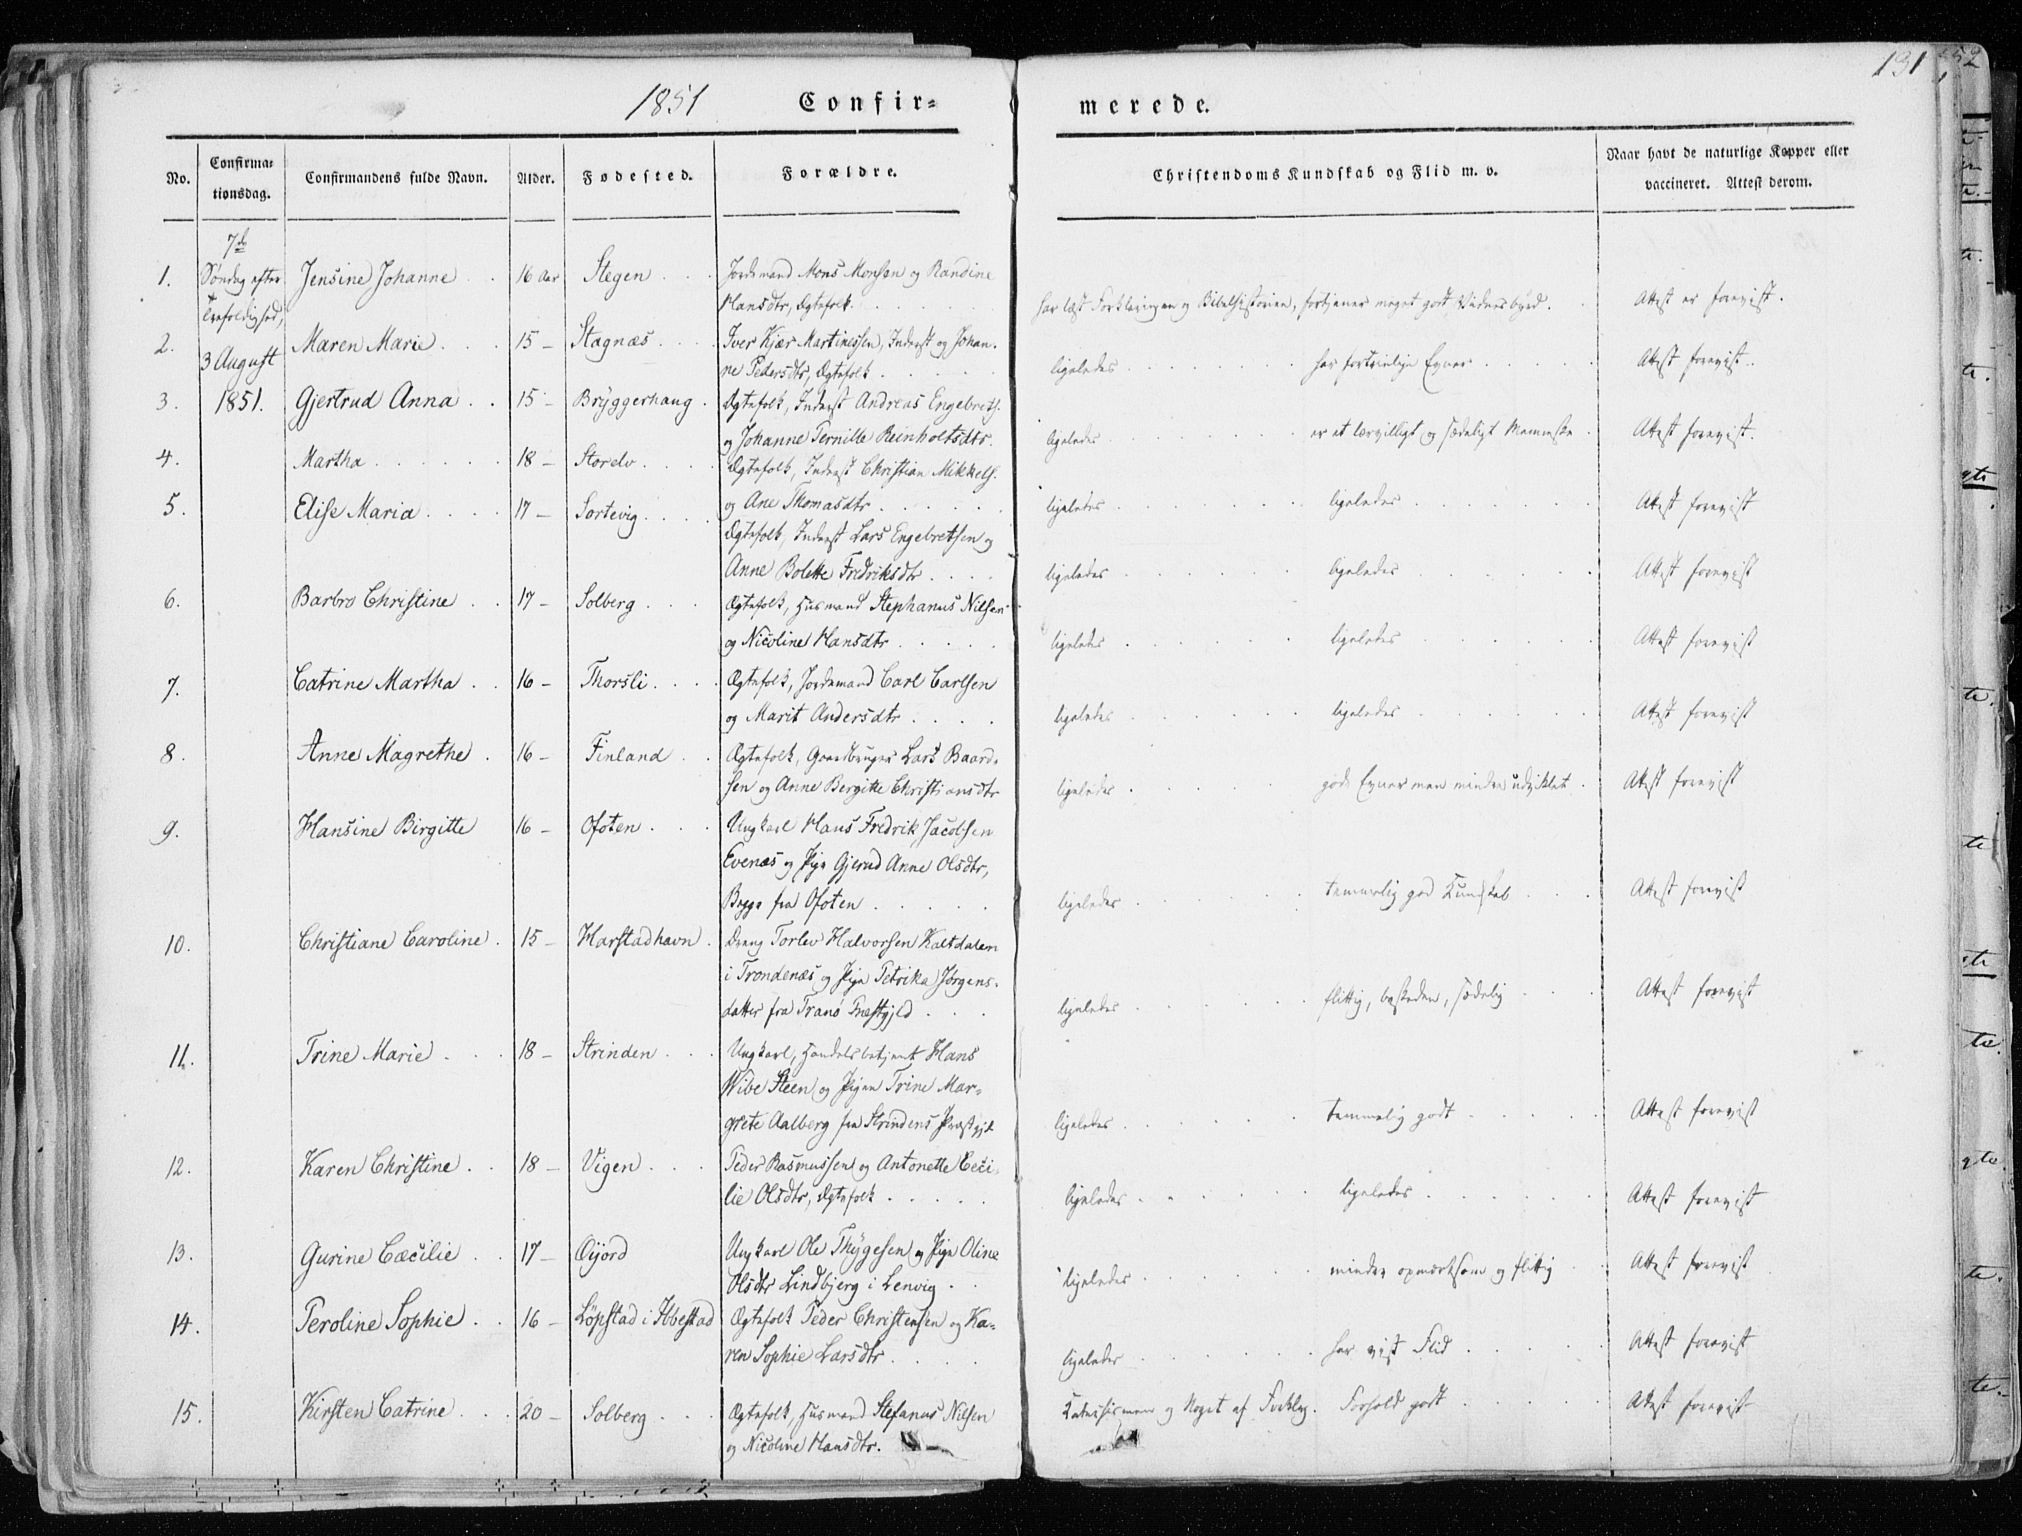 1851 Confir= merede. 131
No. Confirma= Confirmandens fulde Navn. Alder. Fødested. Forældre. Christendoms Kundskab og Flid m. v. Naar havt de naturlige Kopper eller
tionsdag. vaccineret. Attest derom.
7de
1. Søndag efter Jensine Johanne 16 Aar Stegen Jordemand Mons Monsen og Randine
Trefoldighed, Hansdtr, Ægtefolk. har læst Forklaringen og Bibelhistorien, fortjener meget godt Vidnesbyrd. Attest er forevist.
2. Maren Marie 15 – Stagnæs Iver Kjær Martinessen, Inderst og Johan-
3 August ne Pedersdtr, Ægtefolk ligeledes har fortrinlige Evner Attest forevist.
3. 1851. Gjertrud Anna 15 – Bryggerhaug Ægtefolk, Inderst Andreas Engebrets.
og Johanne Pernille Reinholtsdtr. ligeledes er et lærvilligt og sædeligt Menneske Attest forevist.
4. Martha 18 – Storelv Ægtefolk, Inderst Christian Mikkels.
og Ane Thomasdtr ligeledes ligeledes Attest forevist
5. Elise Maria 17 – Sortevig Ægtefolk, Inderst Lars Engebretsen og
Anne Bolette Fredriksdtr ligeledes ligeledes Attest forevist
6. Barbro Christine 17 – Solberg Ægtefolk, Husmand Stephanus Nilsen
og Nicoline Hansdtr ligeledes ligeledes Attest forevist
7. Catrine Martha 16 – Thorsli Ægtefolk, Jordemand Carl Carlsen
og Marit Andersdtr ligeledes ligeledes Attest forevist
8. Anne Magrethe 16 – Finland Ægtefolk, Gaardbruger Lars Baard-
sen og Anne Bergitte Christiansdtr ligeledes gode Evner men mindre udviklet Attest forevist
9. Hansine Birgitte 16 – Ofoten Ungkarl Hans Fredrik Jacobsen
Evenæs og Pige Gjerud Anne Olsdtr,
Begge fra Ofoten ligeledes temmelig god Kundskab Attest forevist
10. Christiane Caroline 15 – Harstadhavn Dreng Torlev Halvorsen Kaltdalen
i Trondenæs og Pige Petrika Jørgens-
datter fra Tranø Præstgjeld ligeledes flittig, beskeden, sædelig Attest forevist
11. Trine Marie 18 – Strinden Ungkarl, Handelsbetjent Hans
Wibe Steen og Pigen Trine Mar-
grete Aalberg fra Strindens Præstgjd ligeledes temmelig godt Attest forevist
12. Karen Christine 18 – Vigen Peder Rasmussen og Antonette Ceci-
lie Olsdtr, Ægtefolk ligeledes ligeledes Attest forevist
13. Gurine Cæcilie 17 – Øijord Ungkarl Ole Thygesen og Pige Oline
Olsdtr Lindbjerg i Lenvig ligeledes mindre opmærksom og flittig Attest forevist
14. Peroline Sophie 16 – Løpstad i Ibbestad Ægtefolk Peder Christensen og Ka-
ren Sophie Larsdtr ligeledes har vist Flid Attest forevist
15. Kirsten Catrine 20 – Solberg Ægtefolk, Husmand Stefanus Nilsen Katechismen og Noget af Forklag. Forhold godt Attest forevist
og Nicoline Hansdtr.